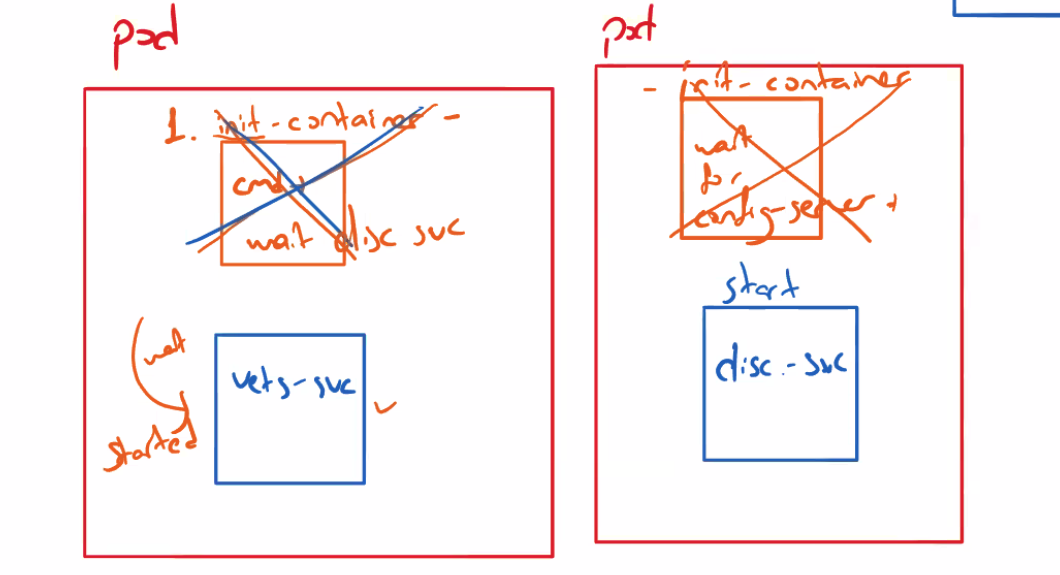 pod
1. init-container -
cmd
wait disc svc
wait
started
vets-svc
pod
- init-container
wait
for
config-server
start
disc.-svc